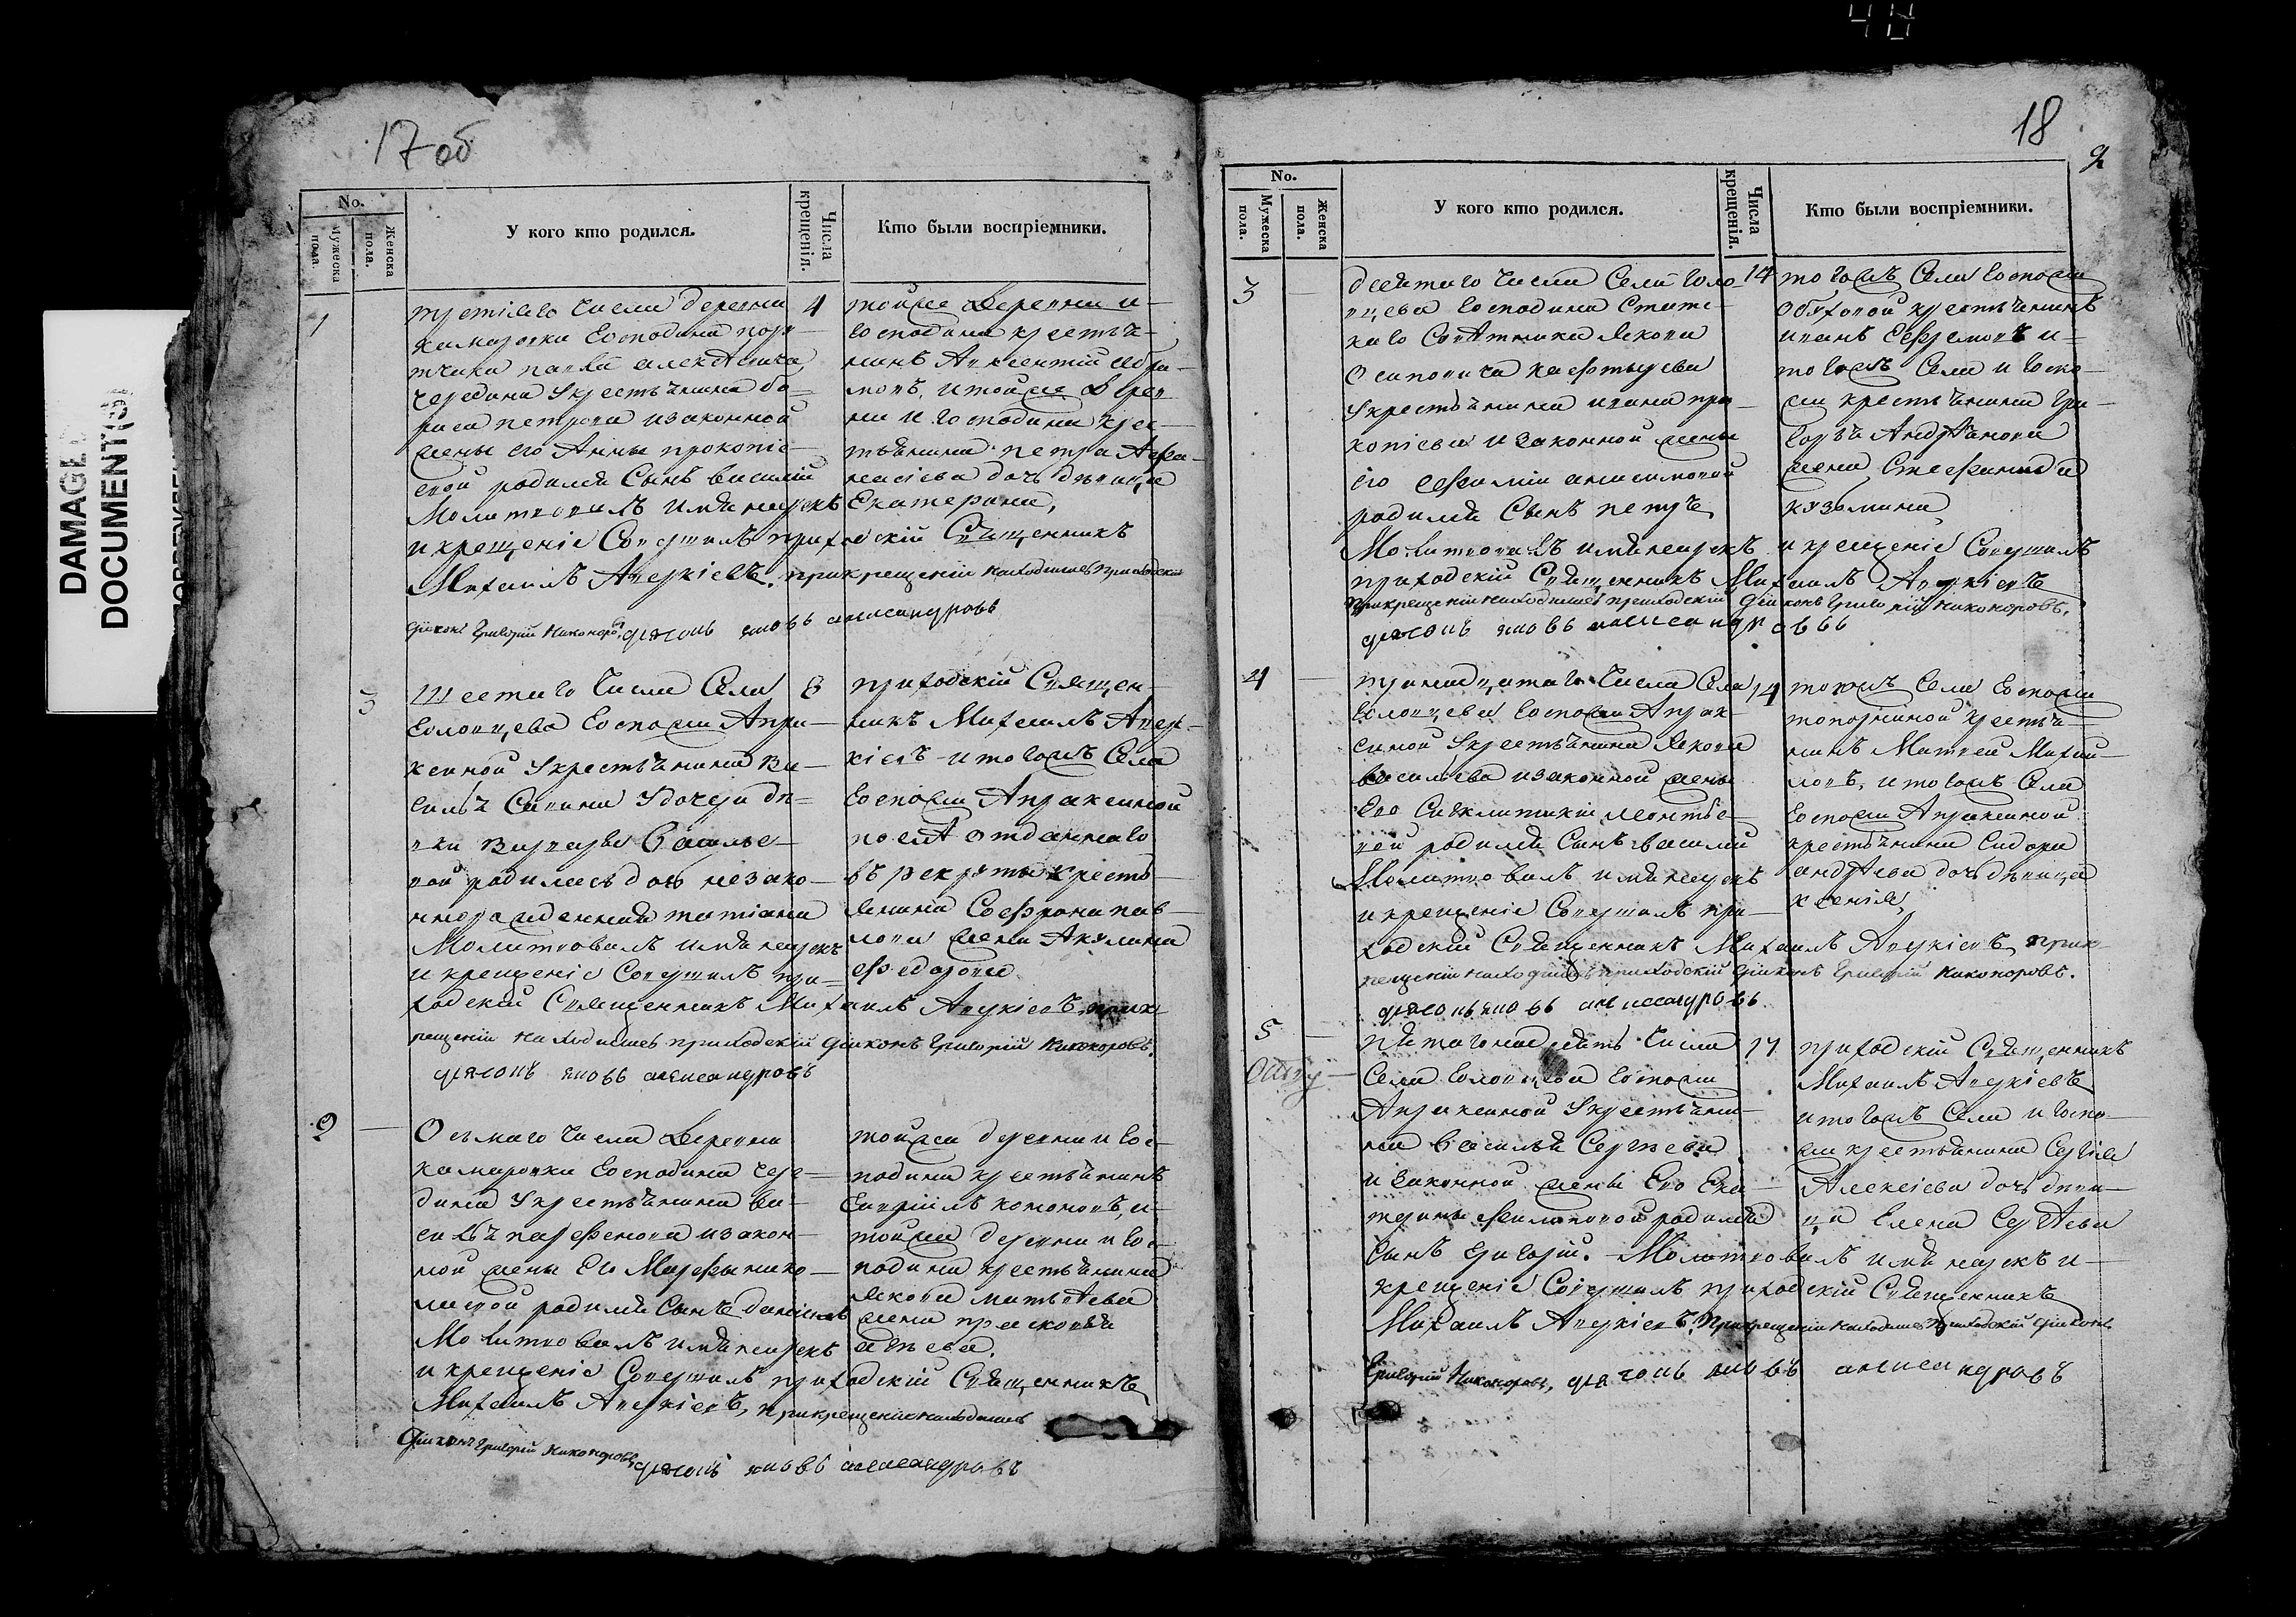 48
DAMAGED
DOCUMENT(S)
17 об
No.
Мужеска пола.
Женска пола.
У кого кто родился.
Числа крещенія.
Кто были воспріемники.
1
третіяго числа деревни
Камаровки Господина пору-
тчика
Чередина у крестьянина бо-
риса петрова и законной
жены его Анны прокопіе-
вой родился Сынъ василій
Молитвовалъ имя нарекъ
и крещеніе Совершилъ приходскій Священникъ
Михаилъ Аверкіевъ. при крещеніи находился приходскій
діаконъ Григорій Никоноровъ, дьячокъ яковъ александровъ
4
тойже Деревни и
Господина крестья-
нинъ Авксентій
и тойже Дерев-
ни и Господина крес-
тьянина петра Афа-
насіева дочь девица
Екатерина,
3
Шестаго числа Села
Голопцева Госпожи Апра-
ксиной у крестьянина Ва-
силья Савина у дочери де-
вки Варвары Василье-
вой родилась дочь незако-
ннорожденная татіана
Молитвовалъ имя нарекъ
и крещеніе Совершилъ при-
ходскій Священникъ Михаилъ Аверкіевъ, при к
рещеніи находился приходскій діаконъ Григорій Никоноровъ.
дьячокъ яковъ александровъ
8
приходскій Священ-
никъ Михаилъ Авер-
кіевъ и тогожъ Села
Госпожи Апраксиной
после отданнаго
въ рекруты кресть-
янина Софрона пав-
лова жена Акулина
федорова
2
Осьмаго числа Деревни
Камаровки Господина чере-
дина у крестьянина ва-
силья парфенова и закон-
ной жены его Марфы нико-
лаевой родился Сынъ
Молитвовалъ имя нарекъ
и крещеніе Совершилъ приходскій Священникъ
Михаилъ Аверкіевъ, при крещеніи находился
діаконъ Григорій Никоноровъ, дьячокъ яковъ александровъ
тойжа деревни и Гос-
подина крестьянинъ
Гавріилъ кононовъ, и
тойжа деревни и Гос-
подина крестьянина
Якова матвеева
жена
18
2
No.
Мужеска пола.
Женска пола.
У кого кто родился.
Числа крещенія.
Кто были воспріемники.
3
Десятаго числа Села Голо-
пцева Господина Статс-
каго Советника Якова
Осиповича
у крестьянина ивана про-
копіева и законной жены
его Ефиміи анисимовой
родился Сынъ петръ,
Молитвовалъ имя нарекъ и крещеніе Совершилъ
приходскій Священникъ Михаилъ Аверкіевъ
при крещеніи находился приходскій діаконъ Григорій Никоноровъ,
дьячокъ яковъ александровъ
14
тогожъ Села Госпожи
крестьянинъ
иванъ Ефремовъ и
тогожъ Села и Госпо-
жи крестьянина Гри-
горья Андреянова
жена Стефанида
кузьмина,
4
тринадцатаго числа Села
Голопцева Госпожи Апрак-
синой у крестьянина Якова
васильева и законной жены
Его Сигклитикіи леонтье-
вой родился Сынъ василій
Молитвовалъ имя нарекъ
и крещеніе Совершилъ при-
ходскій Священникъ Михаилъ Аверкіевъ, при к
рещеніи находился приходскій діаконъ Григорій Никоноровъ.
дьячокъ яковъ александровъ
14
тогожъ Села Госпожи
крестья-
нинъ Матвей Михай-
ловъ, и тогожъ Села
Госпожи Апраксиной
крестьянина Сидора
андреева дочь девица
ксенія,
5
Пятагонадесять числа
Села Голопцева Госпожи
Апраксиной у крестьяни-
на Василья Сергеева
и законной жены Его Ека-
терины филиповой родился
Сынъ Григорій. Молитвовалъ имя нарекъ и
крещеніе Совершилъ приходскій Священникъ
Михаилъ Аверкіевъ. При крещеніи находился Приходскій діаконъ
Григорій Никоноровъ, дьячокъ яковъ александровъ
17
приходскій Священникъ
Михаилъ Аверкіевъ
и тогожъ Села и Госпо-
жи крестьянина Сергія
Алексіева дочь деви-
ца Елена Сергеева